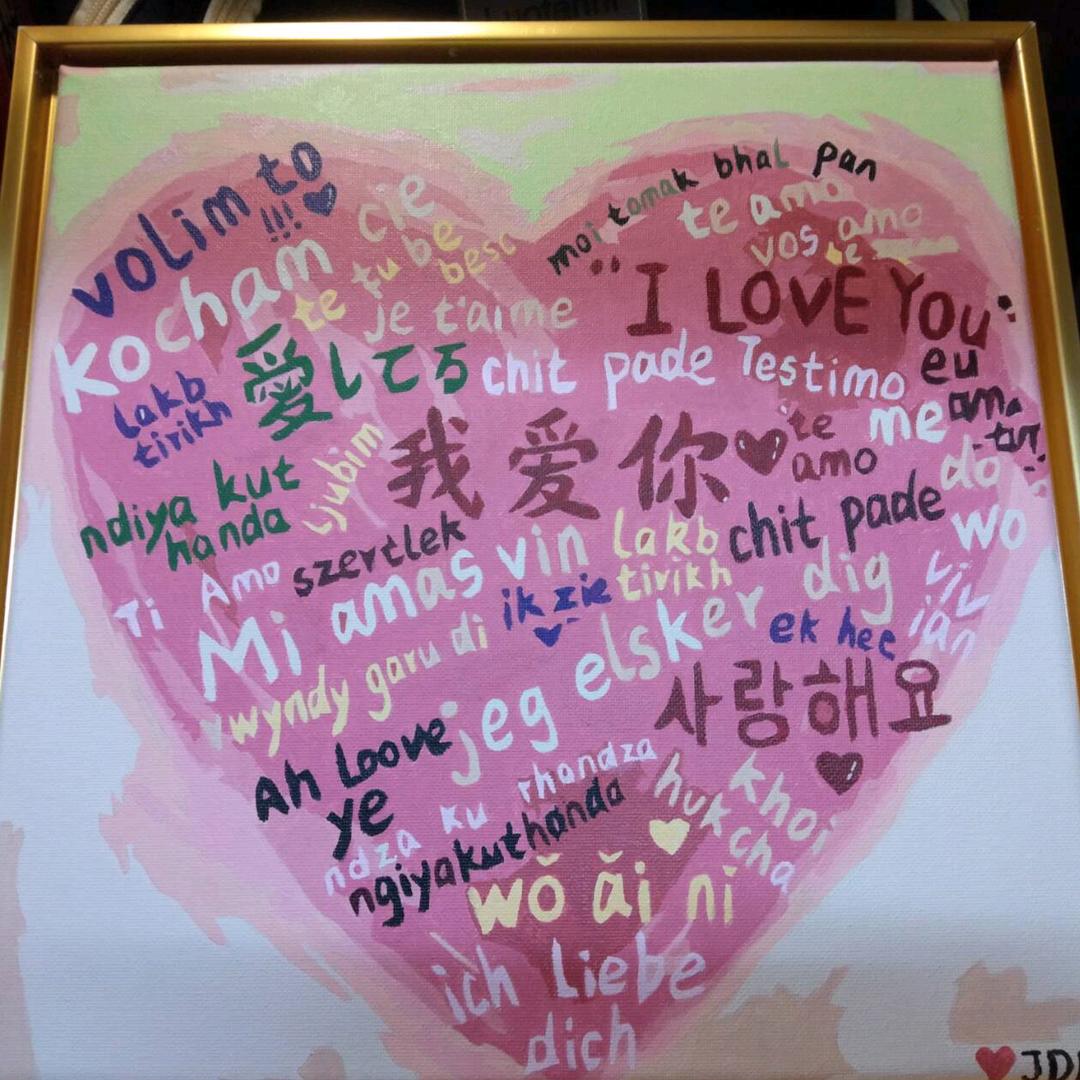 volim to
!!!
kocham cie
te tu be besc
je t'aime
moi tomak bhal pan
te amo
vos amo
te
"I LOVE YOU"
愛してる
lakb
tirikh
chit pade
Testimo
eu
am
tur
me
我爱你
te
amo
ljubim
ndiya kut
handa
szertlek
do
wo
chit pade
Ti Amo
Mi amas vin
lakb
tirikh
ik zie
dig
liv
ian
wyndy garu di
jeg elsker
ek hec
사랑해요
Ah Loove
ye
ndza ku rhandza
ngiyakuthanda
huk cha
khoi
wǒ ǎi ni
ich liebe
dich
JD